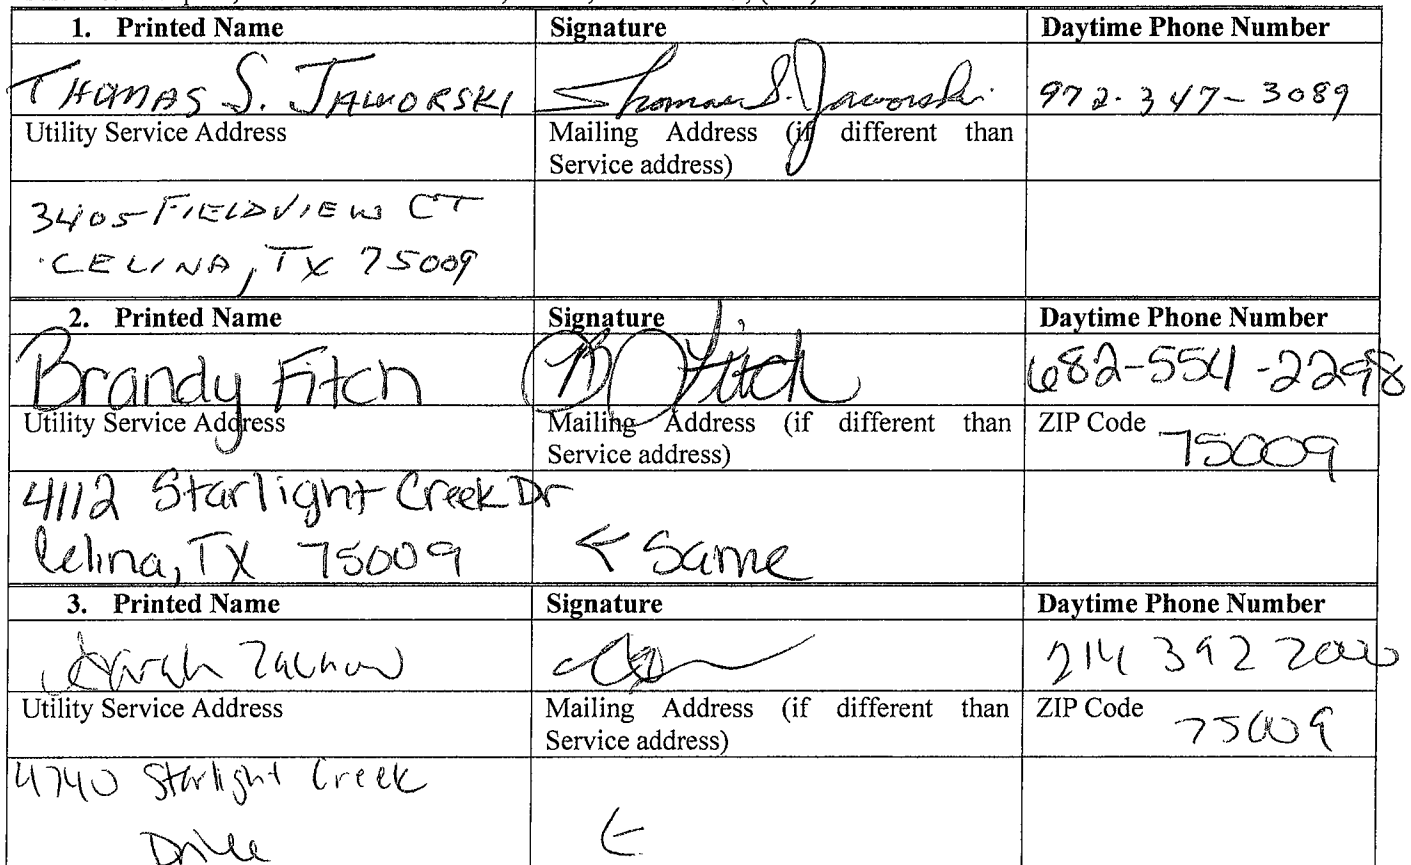 1. Printed Name Signature Daytime Phone Number
THOMAS S. JAWORSKI Thomas S. Jaworski 972-347-3089
Utility Service Address Mailing Address (if different than
Service address)
3405 FIELDVIEW CT
CELINA, TX 75009
2. Printed Name Signature Daytime Phone Number
Brandy Fitch B Fitch 682-554-2298
Utility Service Address Mailing Address (if different than ZIP Code 75009
Service address)
4112 Starlight Creek Dr
Celina, TX 75009 ← Same
3. Printed Name Signature Daytime Phone Number
Sarah 214 392 2000
Utility Service Address Mailing Address (if different than ZIP Code 75009
Service address)
4740 Starlight Creek
Drive ←